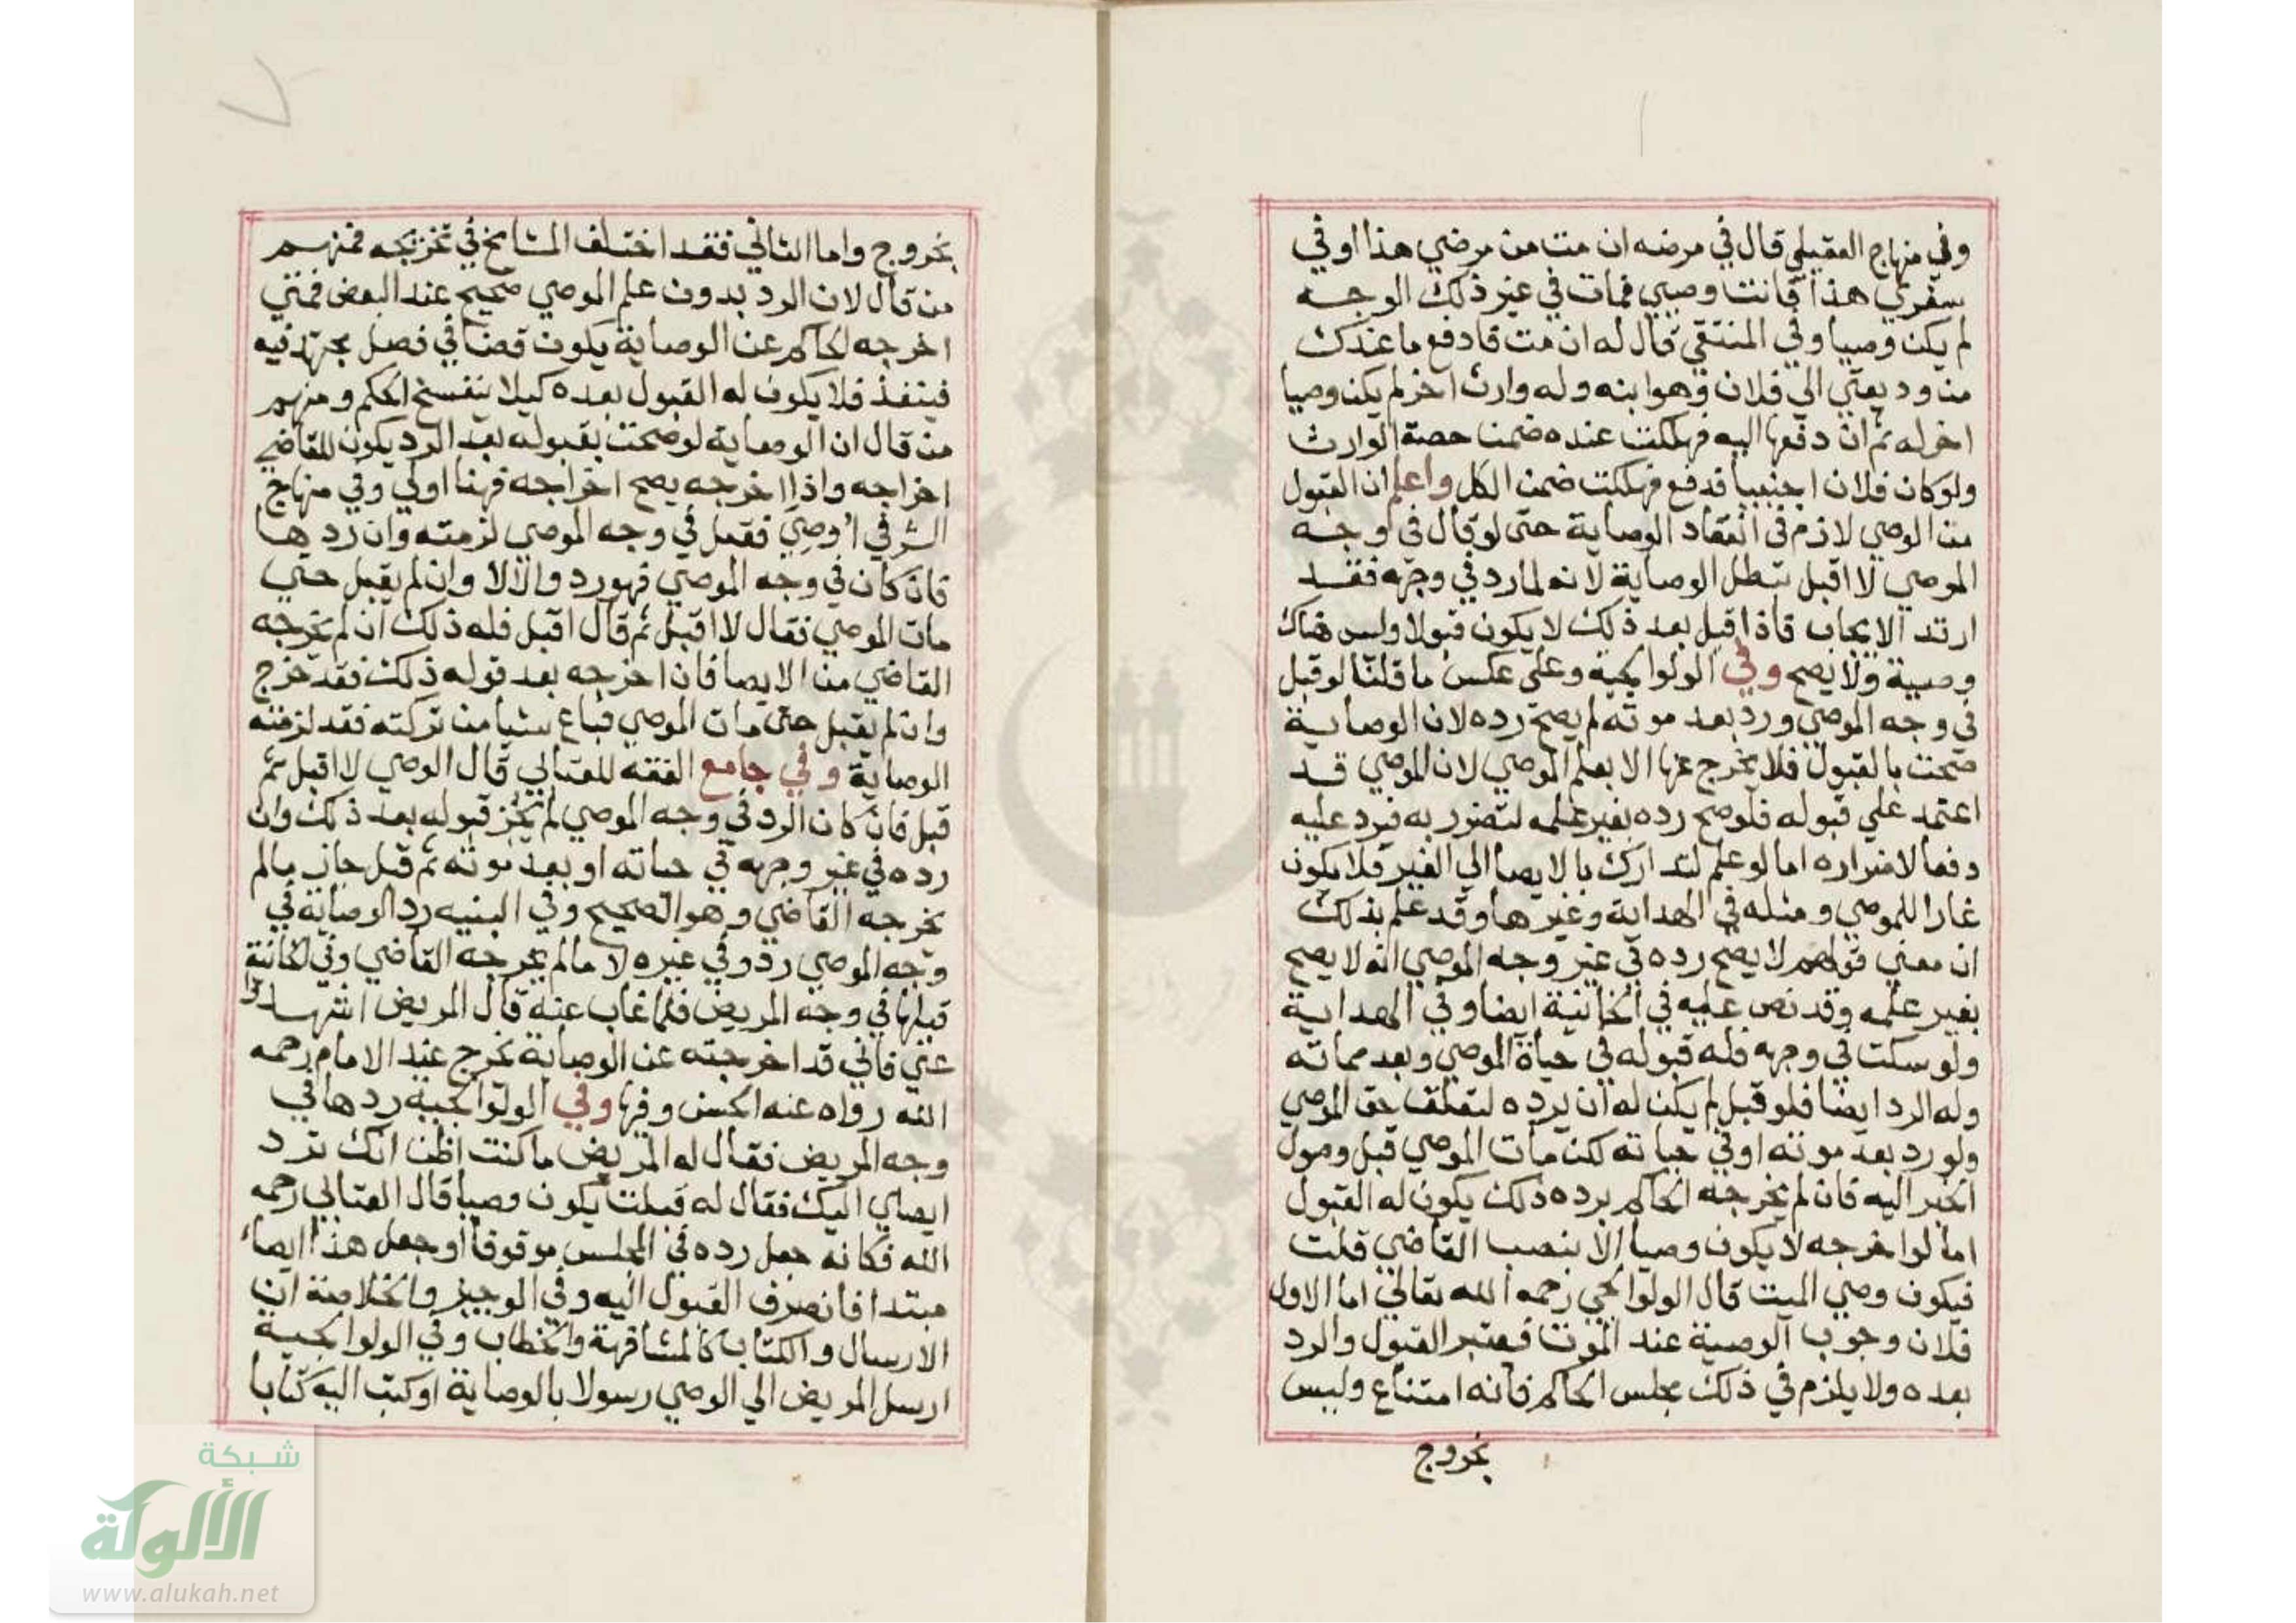 وفي منهاج العقيلي قال في مرضه ان مت من مرضي هذا اوفي
سفري هذا فانت وصيي فمات في غير ذلك الوجه
لم يكن وصيا وفي المنتقي قال له ان مت فادفع ما عندك
من وديعتي الي فلان وهو ابنه وله وارث اخر لم يكن وصيا
اخر له ثم ان دفعها اليه فهلكت عنده ضمنا حصة الوارث
ولو كان فلان اجنبيا فدفع فهلكت ضمن الكل واعلم ان القبول
من الوصي لازم في انعقاد الوصاية حتي لو قال في وجه
الموصي لا اقبل تبطل الوصاية لانه لما رد في وجهه فقد
ارتد الايجاب فاذا قبل بعد ذلك لا يكون قبولا وليس هناك
وصية ولا يصح وفي الولوالجيه وعلي عكس ما قلنا لو قبل
في وجه الموصي ورد بعد موته لم يصح رده لان الوصاية
صحت بالقبول فلا يخرج عنها الا بعلم الموصي لان الموصي قد
اعتمد علي قبوله فلو صح رده بغير علمه لتضرر به فيرد عليه
دفعا لاضراره اما لو علم لتدارك بالايصا الي الغير فلا يكون
غارا للموصي ومثله في الهداية وغيرها وقد علم بذلك
ان معني قولهم لا يصح رده في غير وجه الموصي انه لا يصح
بغير علمه وقد نص عليه في الخانية ايضا وفي الهداية
ولو سكت في وجهه فله قبوله في حياة الموصي وبعد مماته
وله الرد ايضا فلو قبل لم يكن له ان يرده لتعلق حق الموصي
ولو رد بعد موته اوفي حياته لكن مات الموصي قبل وصول
الخبر اليه فان لم يخرجه الحاكم برده ذلك يكون له القبول
اما لو اخرجه لا يكون وصيا الا بنصب القاضي قلت
فيكون وصي الميت قال الولوالجي رحمه الله تعالي اما الاول
فلان وجوب الوصية عند الموت فيعتبر القبول والرد
بعده ولا يلزم في ذلك مجلس الحاكم فانه امتناع وليس
بخروج
بخروج واما الثاني فقد اختلف المشايخ في تخريجه فمنهم
من قال لان الرد بدون علم الموصي صحيح عند البعض فمتي
اخرجه الحاكم عن الوصاية يكون قضا في فصل مجتهد فيه
فينفذ فلا يكون له القبول بعده كيلا ينفسخ الحكم ومنهم
من قال ان الوصاية لو صحت بقبوله بعد الرد يكون للقاضي
اخراجه واذا اخرجه يصح اخراجه فهنا اولي وفي منهاج
الشرفي اوصي فقبل في وجه الموصي لزمته وان رديها
فان كان في وجه الموصي فهو رد والا لا وان لم يقبل حتي
مات الموصي فقال لا اقبل ثم قال اقبل فله ذلك ان لم يخرجه
القاضي من الايصا فان اخرجه بعد قوله ذلك فقد خرج
وان لم يقبل حتي مات الموصي فباع شيا من تركته فقد لزمته
الوصاية وفي جامع الفقه للعتابي قال الوصي لا اقبل ثم
قبل فان كان الرد في وجه الموصي لم يجز قبوله بعد ذلك وان
رده في غير وجهه في حياته او بعد موته ثم قبل جاز مالم
يخرجه القاضي وهو الصحيح وفي البنيه رد الوصاية في
وجه الموصي رد وفي غيره لا مالم يخرجه القاضي وفي الخانية
قبلها في وجه المريض فلما غاب عنه قال المريض اشهدوا
عني فاني قد اخرجته عن الوصاية يخرج عند الامام رحمه
الله رواه عنه الحسن وفيها وفي الولوالجية ردها في
وجه المريض فقال له المريض ما كنت اظن انك ترد
ايصاي اليك فقال له قبلت يكون وصيا قال العتابي رحمه
الله فكانه جعل رده في المجلس موقوفا او جعل هذا ايصاء
مبتدا فانصرف القبول اليه وفي الوجيز والخلاصة ان
الارسال والكتاب كالمشافهة والخطاب وفي الولوالجية
ارسل المريض الي الوصي رسولا بالوصاية او كتب اليه كتابا
شبكة
الألوكة
www.alukah.net